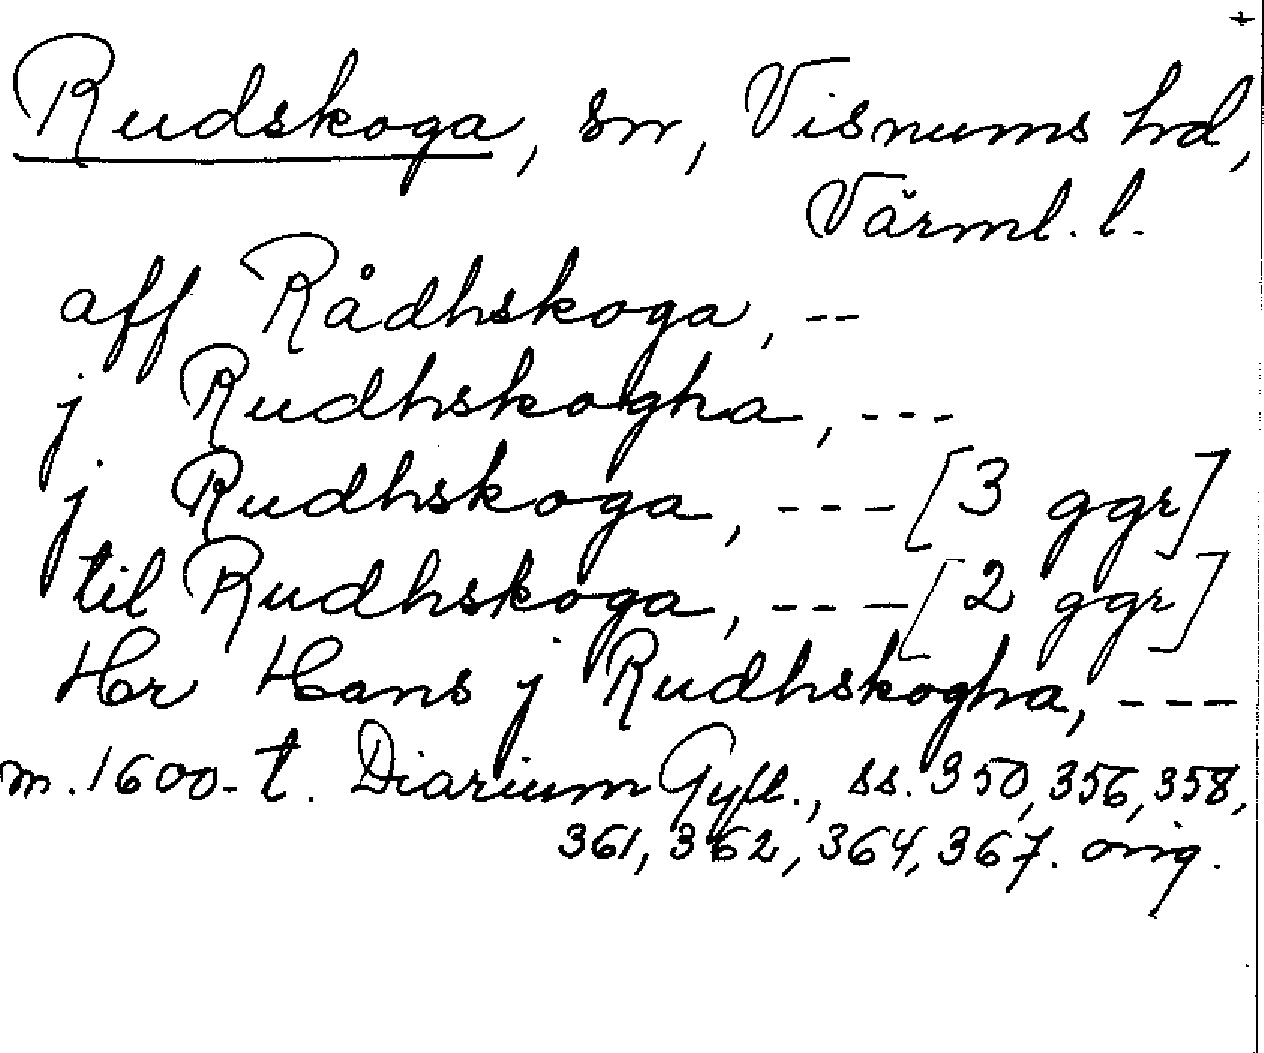 Rudskoga, sn, Visnums hd,
Värml. l.
aff Rådhskoga, --
j Rudhskogha, ---
j Rudhskoga, --- [3 ggr]
til Rudhskoga, --- [2 ggr]
Hr Hans j Rudhskogha, ---
m. 1600-t. Diarium Gyll., ss. 350, 356, 358,
361, 362, 364, 367. orig.